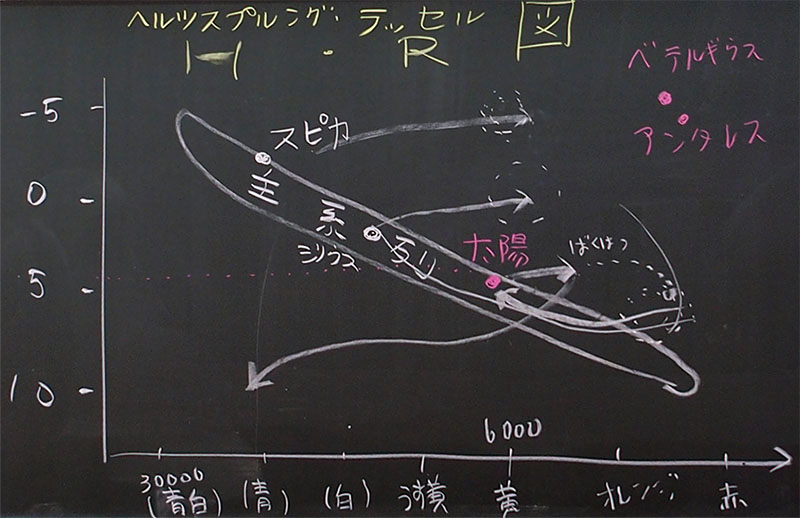 ヘルツスプルング・ラッセル 図
H・R
ベテルギウス
アンタレス
-5
0
5
10
スピカ
主系
シリウス
太陽
ばくはつ
6000
30000
(青白)
(青)
(白)
うす黄
黄
オレンジ
赤